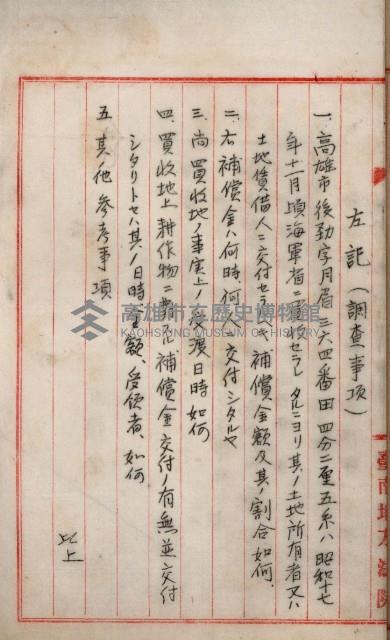 左記(調査事項)
一、高雄市後勁字月眉三六四番田四分二厘五糸ハ昭和十七
年十二月頃海軍省ニ買收セラレタルニヨリ其ノ土地所有者又ハ
土地賃借人ニ交付セラレ 補償金額及其ノ割合如何、
二、右補償金ハ何時何 交付シタルヤ
三、尚買收地ノ事実上ノ 渡日時如何
四、買收地上耕作物ニ 補償金交付ノ有無並交付
シタリトセハ其ノ日時 額、受領者、如何
五、其ノ他参考事項
以上
臺南地方法院
高雄市立歷史博物館
KAOHSIUNG MUSEUM OF HISTORY